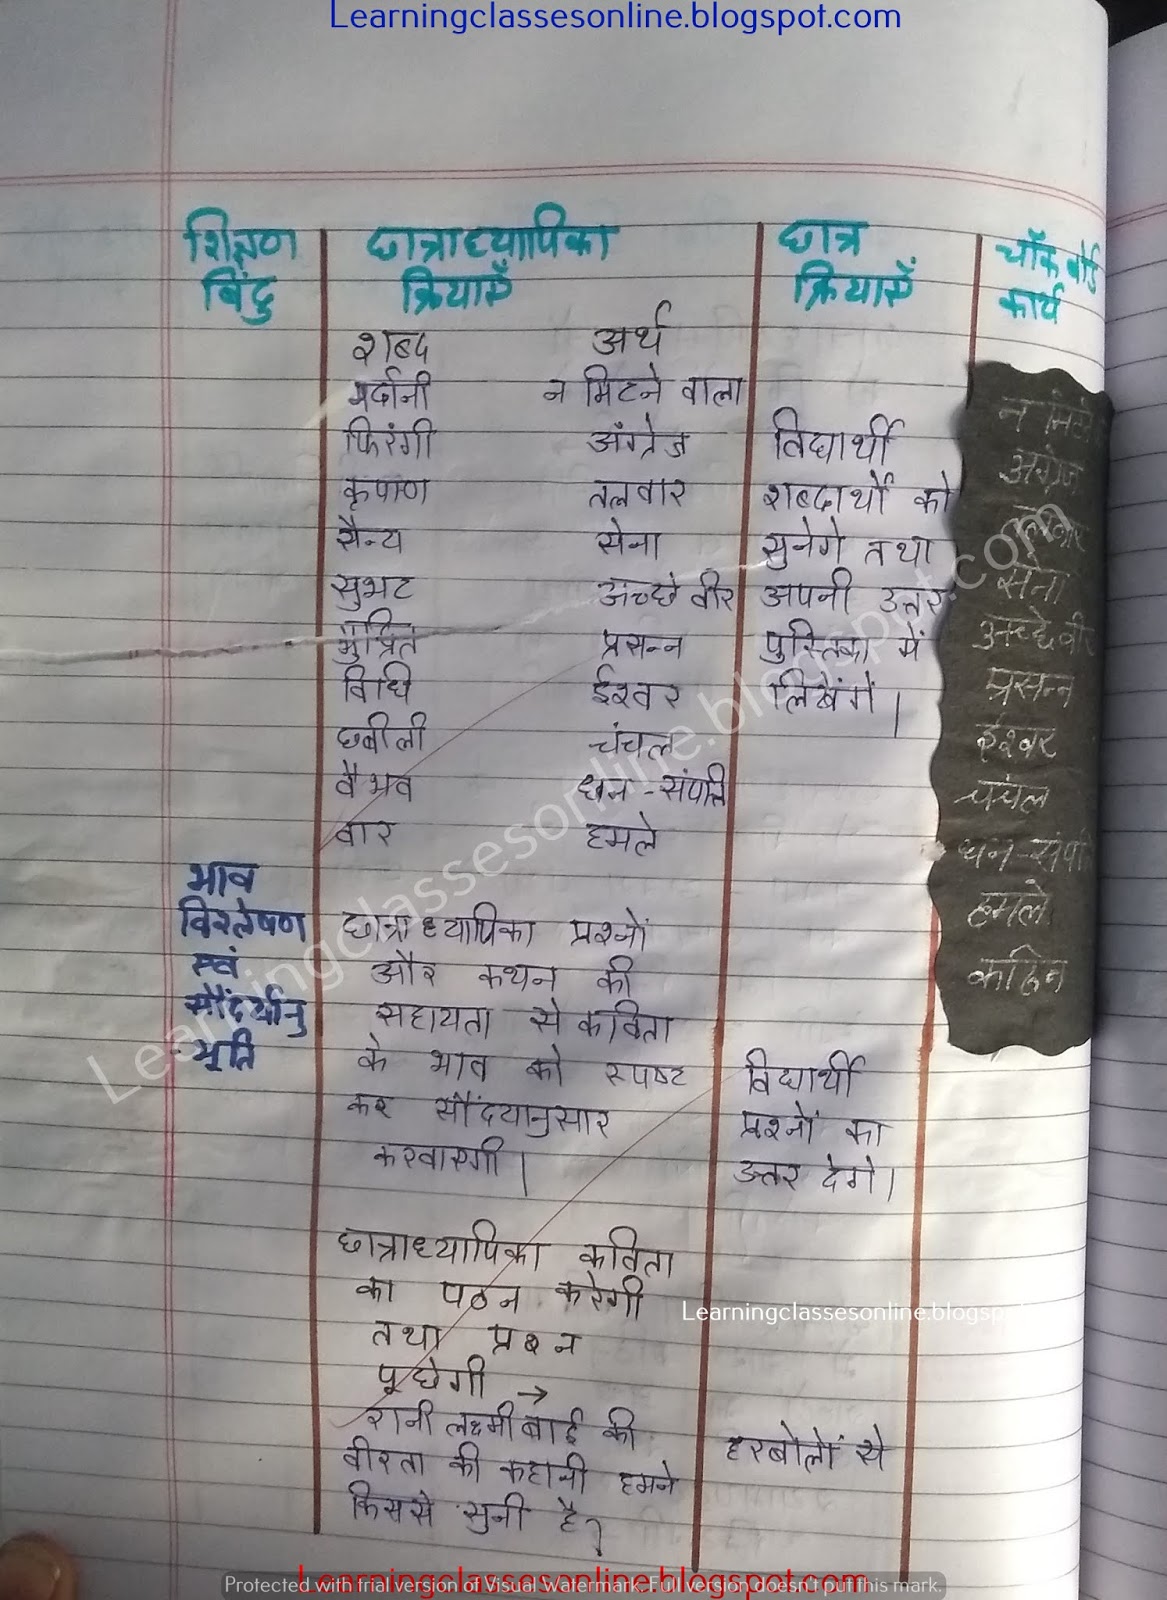 Learningclassesonline.blogspot.com
शिक्षण छात्राध्यापिका छात्र चॉक बोर्ड
बिंदु क्रियाएँ क्रियाएँ कार्य
शब्द अर्थ
मर्दानी न मिटने वाला
फिरंगी अंग्रेज
कृपाण तलवार
सैन्य सेना
सुभट अच्छे वीर
मुदित प्रसन्न
विधि ईश्वर
छबीली चंचल
वैभव धन-संपत्ति
वार हमले
विद्यार्थी
शब्दार्थों को
सुनेगे तथा
अपनी उत्तर
पुस्तिका में
लिखेंगें।
न
अंग्रेज
तलवार
सेना
अच्छे वीर
प्रसन्न
ईश्वर
चंचल
धन-संपत्ति
हमले
कठिन
भाव
विश्लेषण
एवं
सौंदर्यानु
-भूति
छात्राध्यापिका प्रश्नों
और कथन की
सहायता से कविता
के भाव को स्पष्ट
कर सौंदयानुसार
करवाएगी।
विद्यार्थी
प्रश्नों का
उत्तर देगे।
छात्राध्यापिका कविता
का पठन करेगी
तथा प्रश्न
पूछेगी →
रानी लक्ष्मीबाई की
वीरता की कहानी हमने
किससे सुनी है?
हरबोलों से
Learningclassesonline.blogspot.com
Learningclassesonline.blogsp
Learningclassesonline.blogspot.com
Protected with trial version of Visual Watermark. Full version doesn't put this mark.